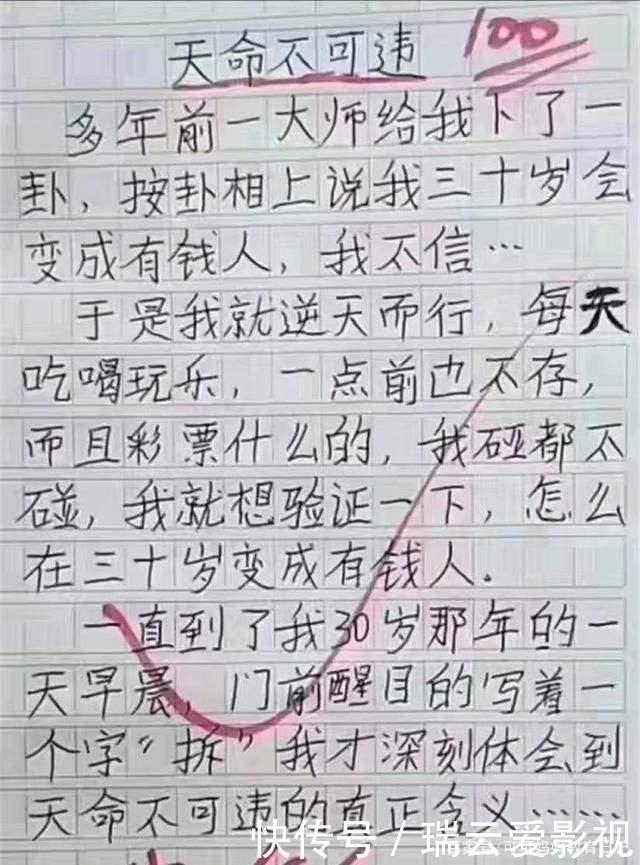 天命不可违 100
多年前一大师给我下了一
卦，按卦相上说我三十岁会
变成有钱人，我不信…
于是我就逆天而行，每天
吃喝玩乐，一点前也不存，
而且彩票什么的，我碰都不
碰，我就想验证一下，怎么
在三十岁变成有钱人.
一直到了我30岁那年的一
天早晨，门前醒目的写着一
个字“拆”我才深刻体会到
天命不可违的真正含义……
快传号／瑞云爱影视